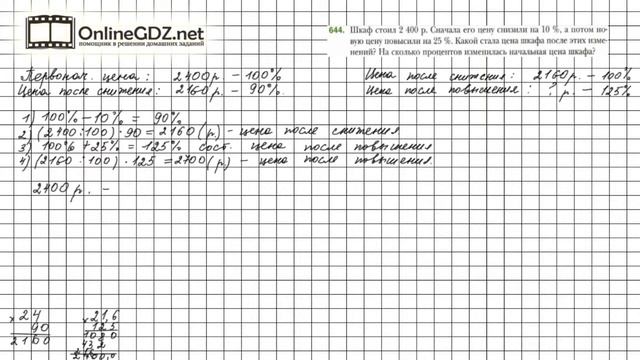 OnlineGDZ.net
помощник в решении домашних заданий
644. Шкаф стоил 2 400 р. Сначала его цену снизили на 10 %, а потом но-
вую цену повысили на 25 %. Какой стала цена шкафа после этих изме-
нений? На сколько процентов изменилась начальная цена шкафа?
Первонач. цена : 2400р. – 100%
Цена после снижения: 2160р. – 90%.
Цена после снижения : 2160р. – 100%
Цена после повышения : ? р. – 125%
1) 100% – 10% = 90%
2) (2400:100) · 90 = 2160(р.) – цена после снижения
3) 100% + 25% = 125% сост. цена после повышения
4) (2160 : 100) · 125 = 2700(р) – цена после повышения.
2400р. –
× 24
90
2160
× 21,6
125
1080
432